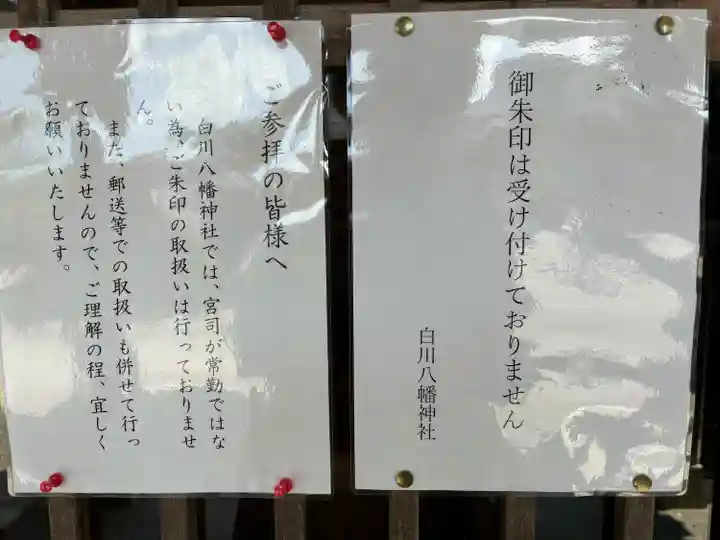 御朱印は受け付けておりません
白川八幡神社
ご参拝の皆様へ
白川八幡神社では、宮司が常勤ではな
い為、ご朱印の取扱いは行っておりませ
ん。
また、郵送等での取扱いも併せて行っ
ておりませんので、ご理解の程、宜しく
お願いいたします。